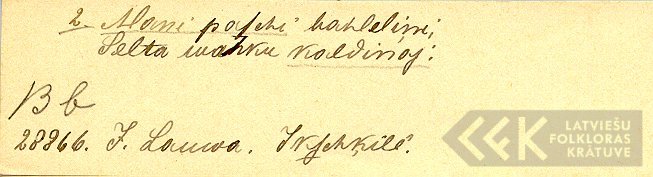 2. Mani paſchi bahleliņi,
Selta wahku kaldinaj:
B b
28866. J. Lauwa. Ikſchķilē.
LATVIEŠU
FOLKLORAS
KRĀTUVE